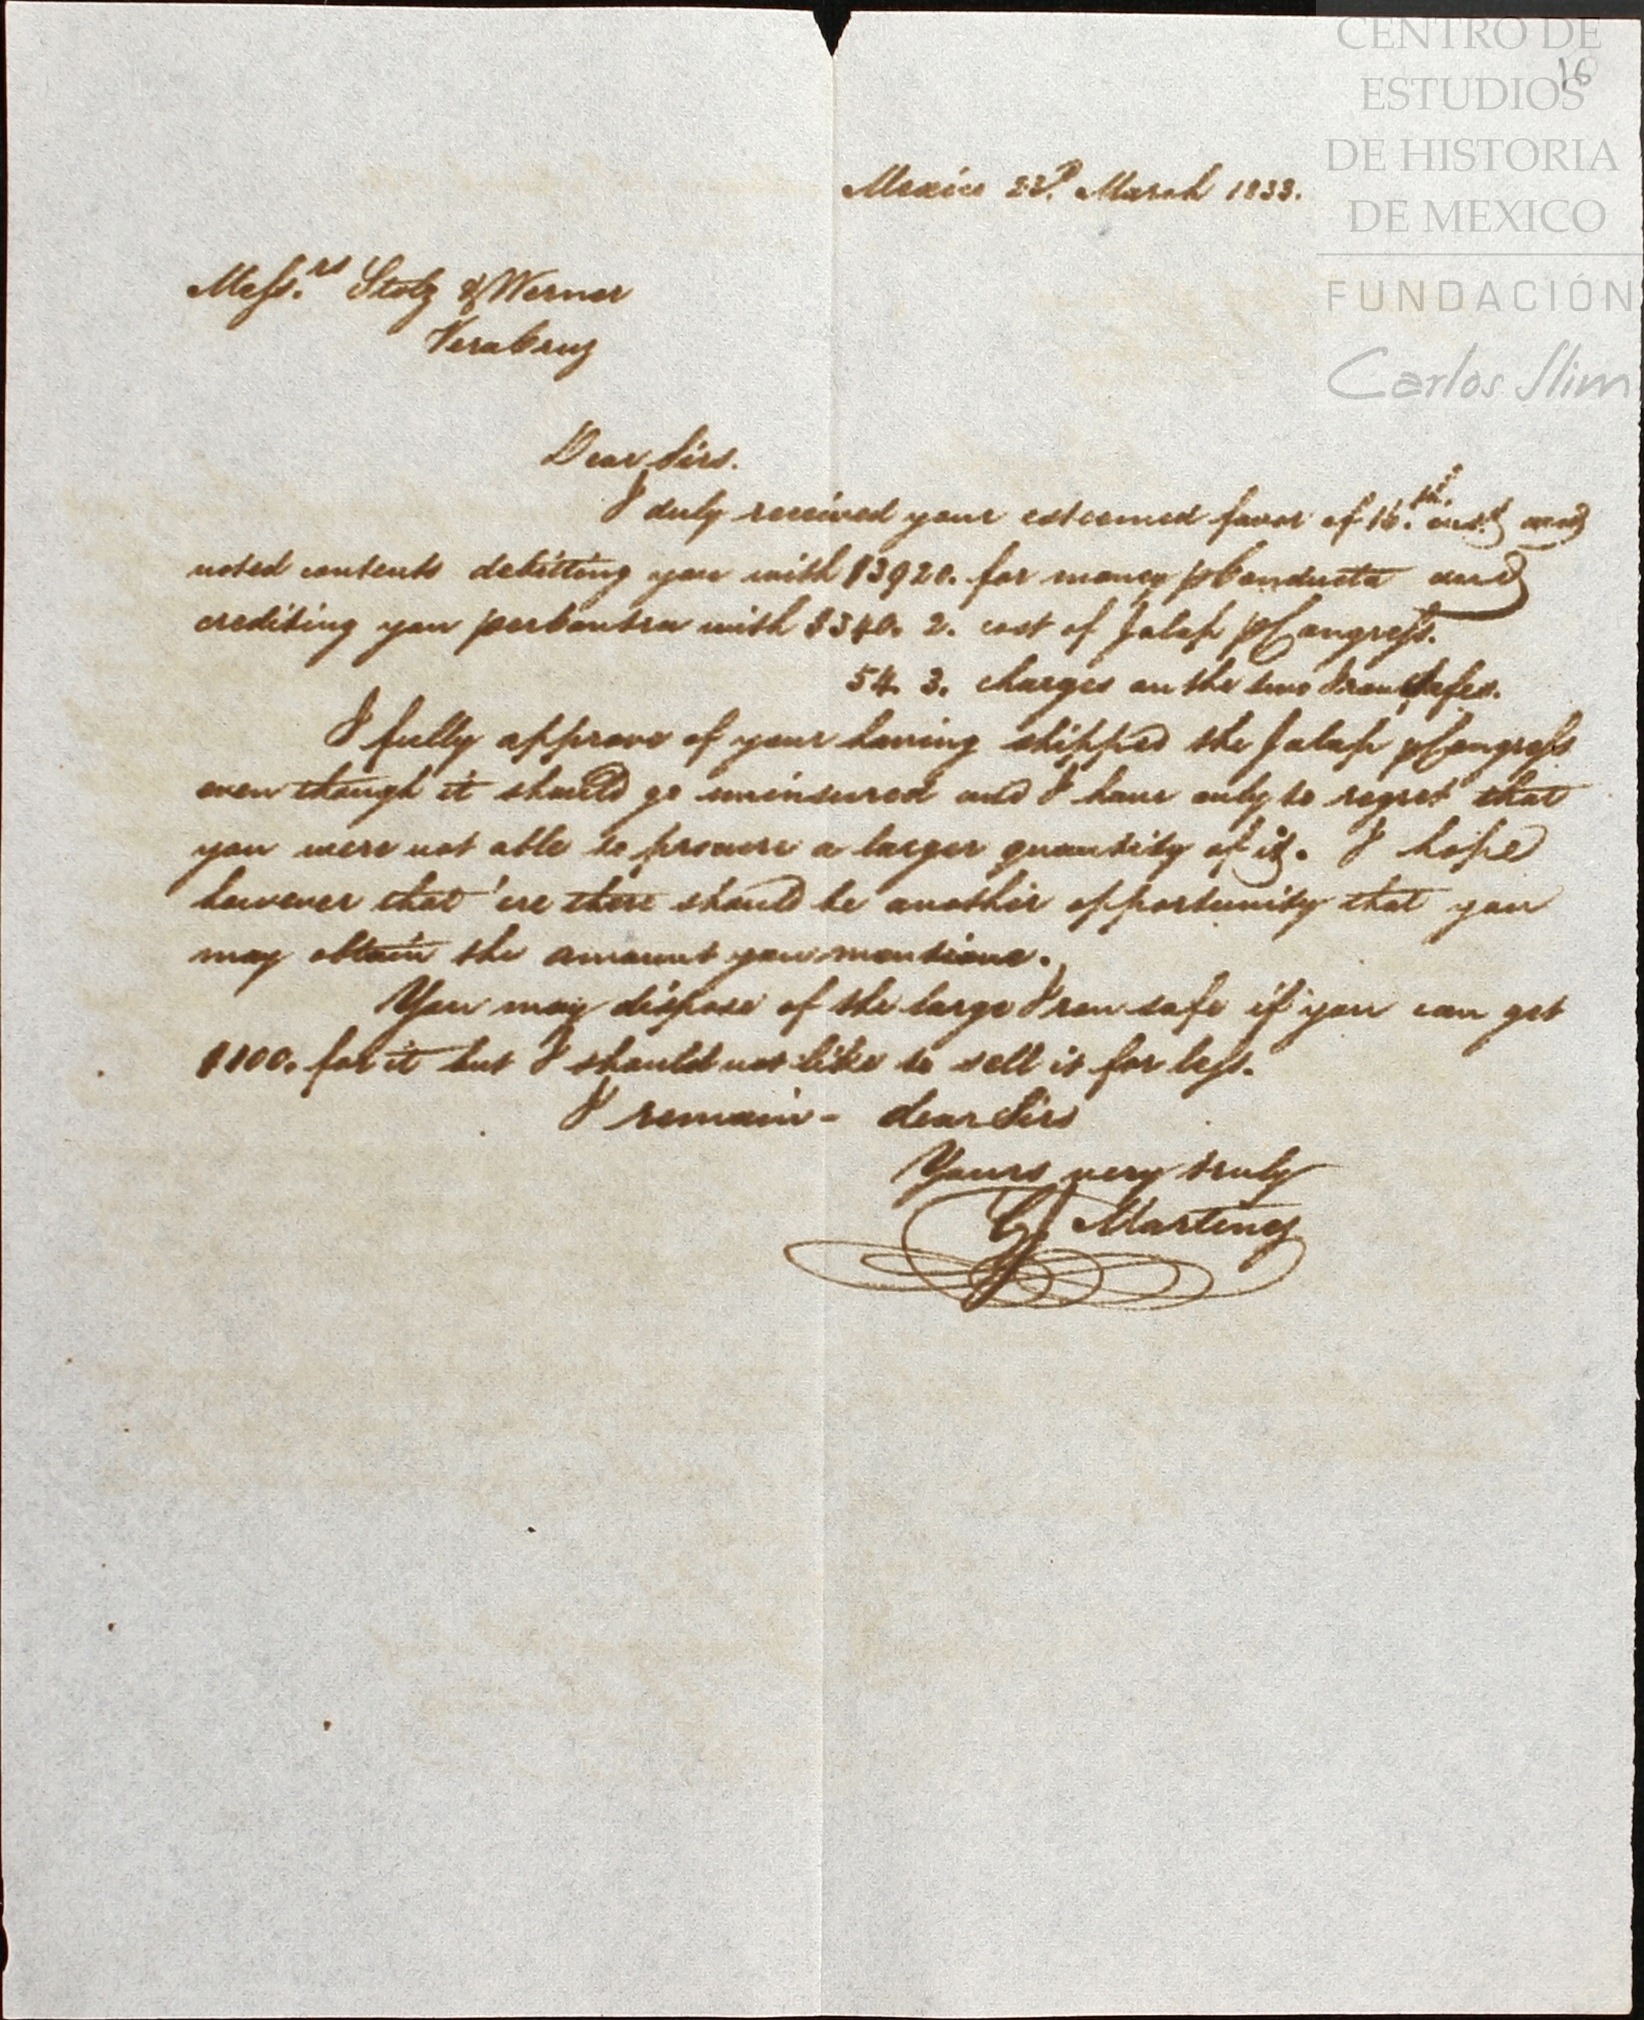 CENTRO DE
ESTUDIOS
DE HISTORIA
DE MEXICO
FUNDACIÓN
Carlos Slim
16
Mexico 22.d March 1833.
Mess.rs Stolz & Werner
VeraCruz
Dear Sirs.
I duly received your esteemed favor of 16.th inst. and
noted contents debitting you with $3920. for money p Conducta and
crediting you per Contra with $340. 2. cost of Jalap p Congress.
54. 3. charges on the two Iron Safes.
I fully approve of your having shipped the Jalap p Congress
even though it should go uninsured and I have only to regret that
you were not able to procure a larger quantity of it. I hope
however that 'ere there should be another opportunity that you
may obtain the amount you mention.
You may dispose of the large Iron safe if you can get
$100. for it but I should not like to sell it for less.
I remain - dear Sirs
Yours very truly
G. Martinez